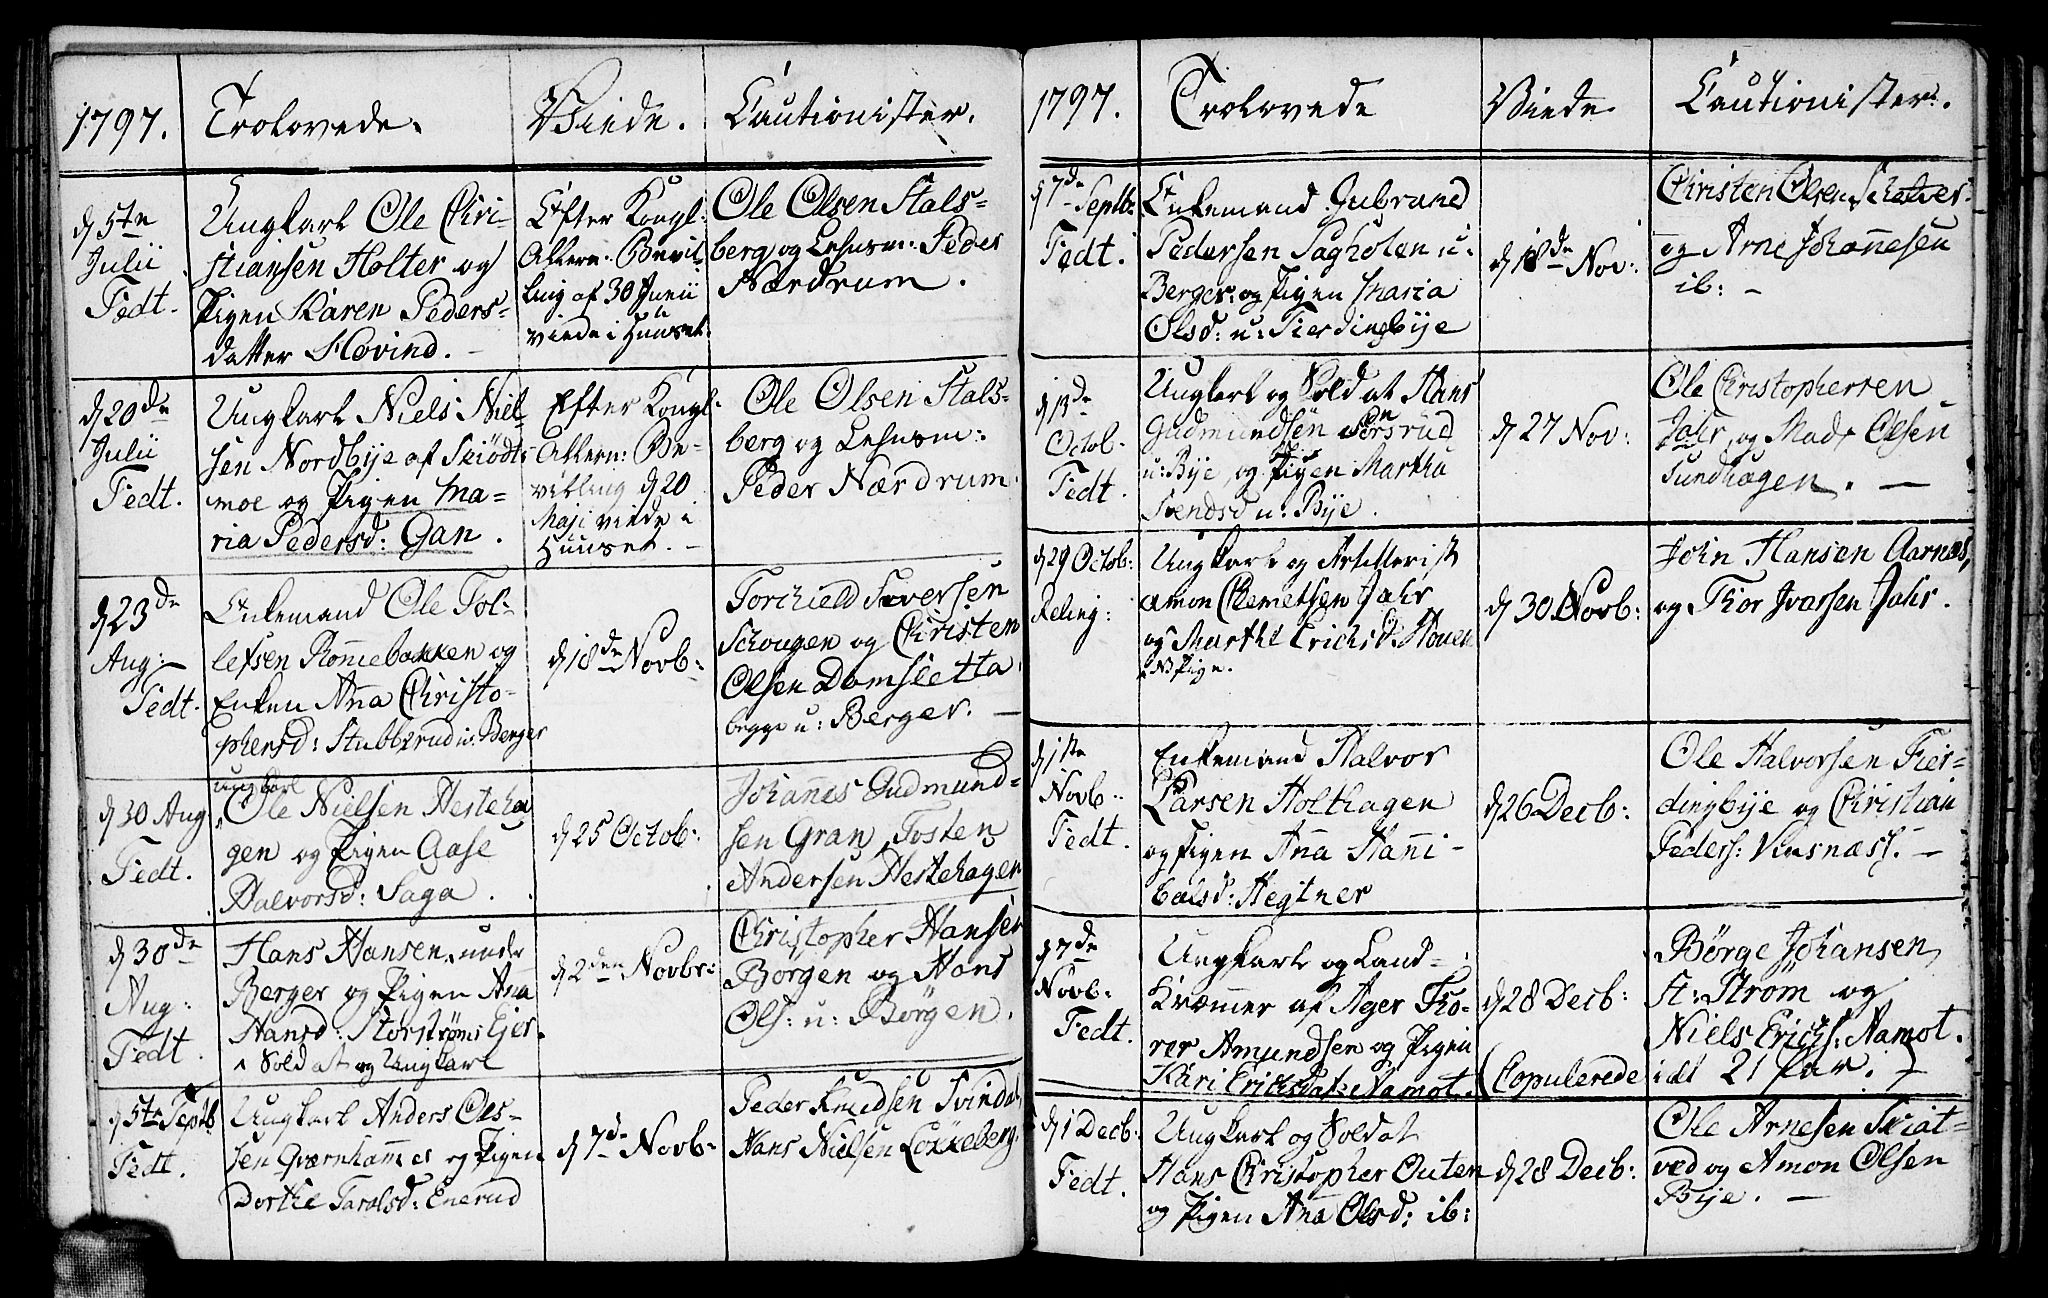 1797.
Trolovede.
Viede.
Cautionister.
d 5te
Julii
Fedt.
Ungkarl Ole Chri-
stiansen Holter og
Pigen Karen Peders-
datter Hovind. -
Efter Kongl:
Allern: Bevil
ling af 30 Junii
viede i Huuset.
Ole Olsen Hals-
berg og Lehnsm: Peder
Nærdrum.
d 20de
Julii
Fedt.
Ungkarl Niels Niel
sen Nordbye af Skiødts-
moe og Pigen Ma-
ria Pedersd: Gan.
Efter Kongl.
Allern: Be-
villing d 20
Maji viede i
Huuset. -
Ole Olsen Hals-
berg og Lehnsm:
Peder Nærdrum.
d 23de
Aug:
Fedt.
Enkemand Ole Tol-
lefsen Rønnebakken og
Enken Aña Christo-
phersd: Stubberud u: Berger
d 18de Novb:
Torchield Siversen
Schougen og Christen
Olsen Damsletta
begge u: Berger. -
d 30 Aug
Fedt.
ungkarl
Ole Nielsen Hesteha
gen og Pigen Aase
Halvorsd: Saga.
d 25 Octob:
Johañes Gudmund-
sen Gran, Tosten
Andersen Hestehagen
d 30de
Aug:
Fedt.
Hans Hansen under
Berger og Pigen Aña
Hansd: Storstrøms Ejer.
Soldat og Ungkarl
d 2den Novbr:
Christopher Hansen
Borgen og Hans
Ols: u: Børgen.
d 5te Septb
Fedt.
Ungkarl Anders Ols-
sen Qværnhammer og Pigen
Dorthe Taralsd: Enerud
d 7de Novb:
Peder Knudsen Svindal,
Hans Nielsen Løkkeberg.
1797.
Trolovede
Viede
Cautionister.
d 7de Septb:
Fedt.
Enkemand Gubrand
Pedersen Sagholen u:
Berger og Pigen Maria
Olsd: u: Fierdingbye
d 18de Nov:
Christen Olsen
og Arne Johañesen
ib: -
d 13de
Octob.
Fedt.
Ungkarl og Soldat Hans
Gudmundsen Sørsrud
u: Bye, og Pigen Martha
Svendsd u: Bye.
d 27 Nov:
Ole Christophersen
Jahr, og Mads Olsen
Sundhagen. -
d 29 Octob:
Reling:
Ungkarl og Artillerist
Amon Clemetsen Jahr
og Marthe Erichsd: Houen
Pige.
d 30 Novb:
John Hansen Aarnæs,
og Thor Ivarsen Jahr.
d 1ste
Novb:
Fedt.
Enkemand Halvor
Larsen Holthagen
og Pigen Aña Hañi-
balsd: Hegtner
d 26 Decb:
Ole Halvorsen Fier-
dingbye og Christian
Peders: Vinsnæss. -
d 7de
Novb:
Fedt.
Ungkarl og Land-
Kræmmer af Ager Tho-
rer Amundsen og Pigen
Kari Ericksdat: Aamot.
d 28 Decb:
(Copulerede
Børge Johansen
St: Strøm og
Niels Erichs: Aamot.
idt 21 Par. )
d 1 Decb:
Fedt.
Ungkarl og Soldat
Hans Christopher Outen
og Pigen Aña Olsd: ib:
d 28 Decb:
Ole Arnesen Skiat-
ved og Amon Olsen
Bye. -